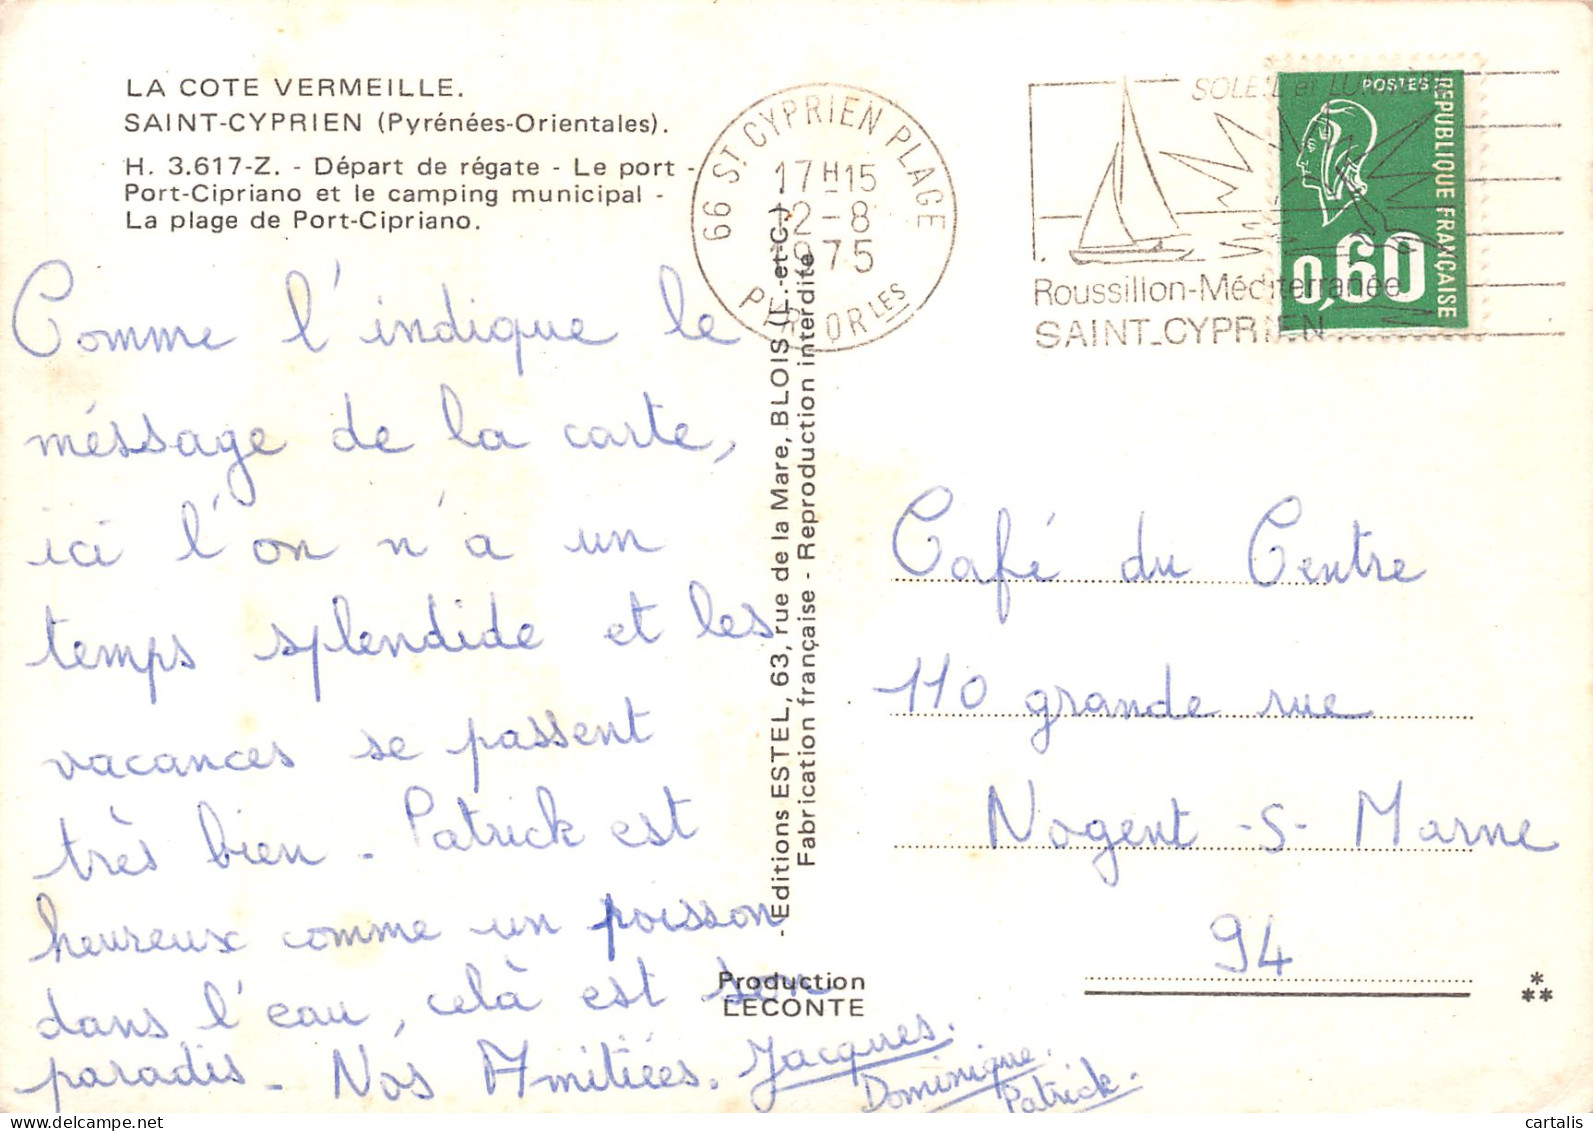 LA COTE VERMEILLE.
SAINT-CYPRIEN (Pyrénées-Orientales).
H. 3.617-Z. - Départ de régate - Le port -
Port-Cipriano et le camping municipal -
La plage de Port-Cipriano.
Comme l'indique le
méssage de la carte,
ici l'on n'a un
temps splendide et les
vacances se passent
très bien - Patrick est
heureux comme un poisson
dans l'eau, celà est son
paradis - Nos Amitiées. Jacques.
Dominique.
Patrick.
66 ST CYPRIEN PLAGE
17H15
12-8
1975
PYR. ORLES
SOLEIL et LUMIÈRE
Roussillon-Méditerranée
SAINT-CYPRIEN
POSTES
REPUBLIQUE FRANÇAISE
0,60
- Editions ESTEL, 63, rue de la Mare, BLOIS (L.-et-C.)
Fabrication française - Reproduction interdite
Production
LECONTE
Café du Centre
110 grande rue
Nogent -s- Marne
94
***
cartalis